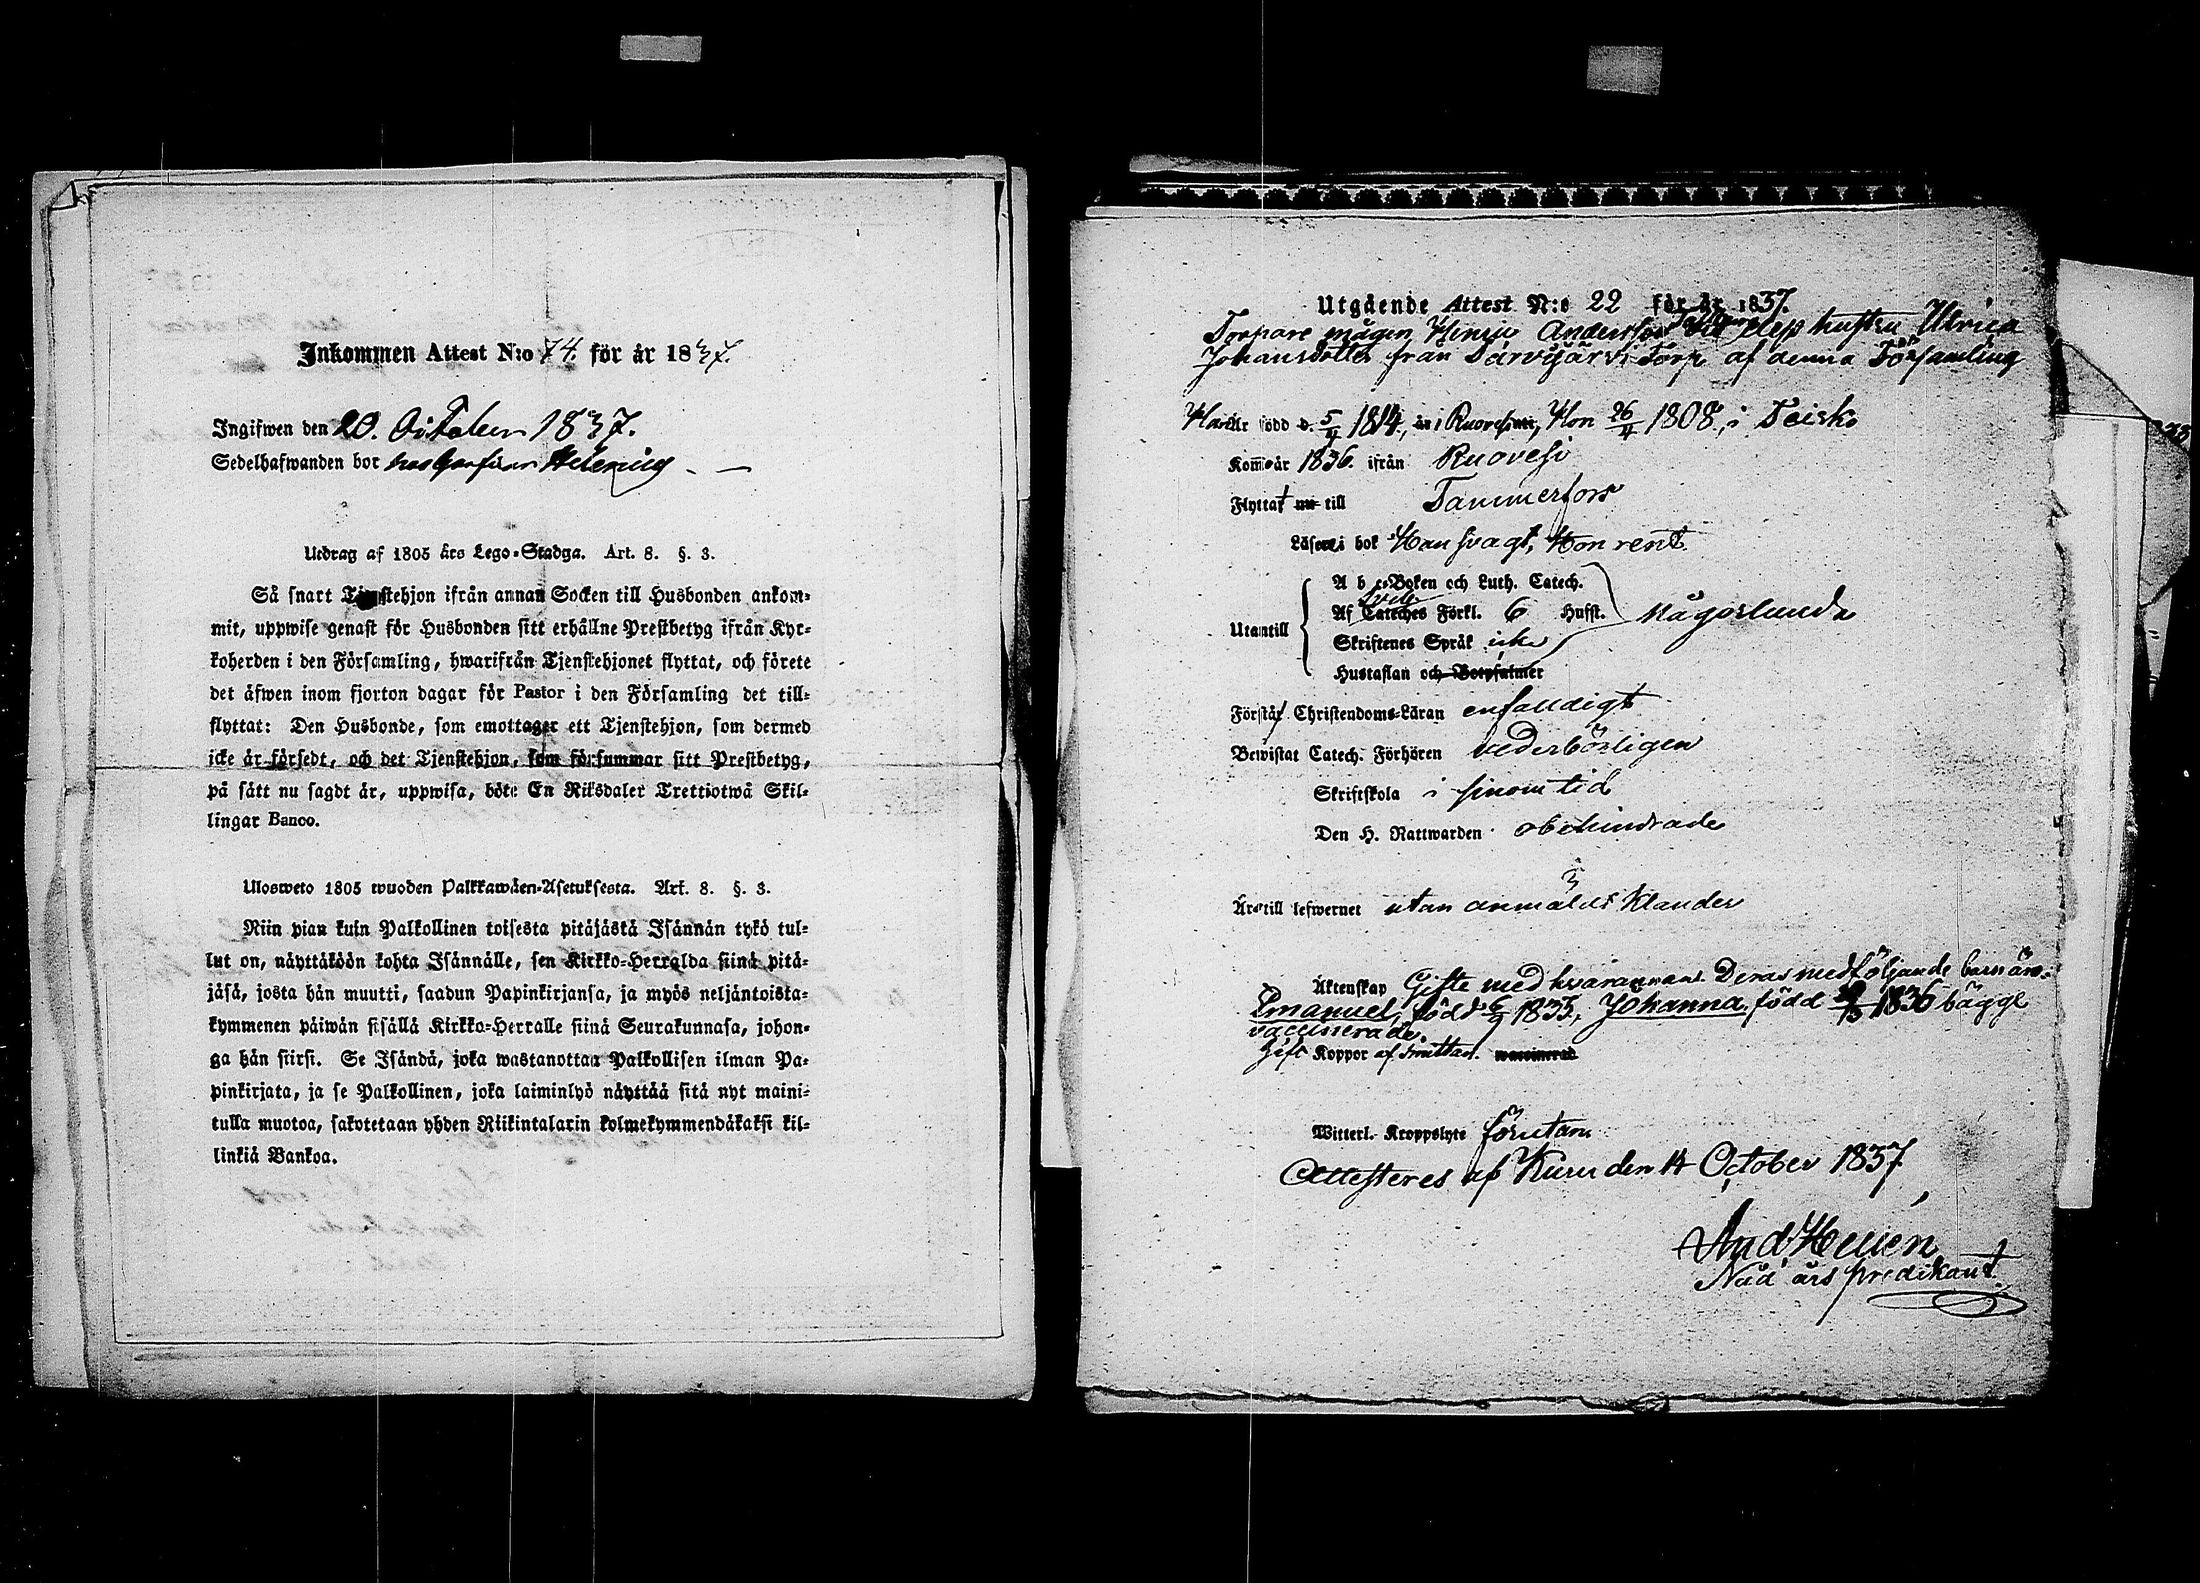 Inkommen Attest N:o 74. för år 1837.
Ingifwen den 20. October 1837.
Sedelhafwanden bor hos Garfvar Helenius
Utdrag af 1805 års Lego-Stadga. Art. 8. §. 3.
Så snart Tjenstehjon ifrån annan Socken till Husbonden ankom-
mit, uppwise genast för Husbonden sitt erhållne Prestbetyg ifrån Kyr-
koherden i den Församling, hwarifrån Tjenstehjonet flyttat, och förete
det äfwen inom fjorton dagar för Pastor i den Församling det till-
flyttat: Den Husbonde, som emottager ett Tjenstehjon, som dermed
icke är försedt, och det Tjenstehjon, som försummar sitt Prestbetyg,
på sätt nu sagdt är, uppwisa, böte En Riksdaler Trettiotwå Skil-
lingar Banco.
Ulosweto 1805 wuoden Palkkawäen-Asetuksesta. Art. 8. §. 3.
Niin pian kuin Palkollinen toisesta pitäjästä Isännän tykö tul-
lut on, näyttäköön kohta Isännälle, sen Kirkko-Herralda siinä pitä-
jäsä, josta hän muutti, saadun Papinkirjansa, ja myös neljäntoista-
kymmenen päiwän sisällä Kirkko-Herralle siinä Seurakunnasa, johon-
ga hän siirsi. Se Isändä, joka wastanottaa Palkollisen ilman Pa-
pinkirjata, ja se Palkollinen, joka laiminlyö näyttää sitä nyt maini-
tulla muotoa, sakotetaan yhden Riikintalarin kolmekymmendäkaksi kil-
linkiä Bankoa.
Utgående Attest N:o 22 för år 1837.
Torpare mågen Henric Andersson dess hustru Ulrica
Johansdotter från Tarvjärvi Torp af denna Församling
Han Är född d. 5/4 1814, i Ruovesi, Hon 26/4 1808, i Teisko
Kom år 1836. ifrån Ruovesi
Flyttat nu till Tammerfors
Läser i bok Han svagt, Hon rent.
A b c-Boken och Luth. Catech.
Utantill Af Cateches Förkl. 6 Hufst. någorlunda
Skriftenes Språk icke
Hustaflan och Botpsalmer
Förstår Christendoms-Läran enfaldigt
Bewistat Catech. Förhören vederbörligen
Skriftskola i sinom tid
Den H. Nattwarden obehindrade
Äro till lefwernet utan anmäldt klander
Äktenskap Gifte med hvarannan. Deras medföljande barn äro:
Emanuel, född 6/9 1835, Johanna, född 1836 bägge
vaccinerade.
Haft Koppor af smittan. waccinerad
Witterl. Kroppslyte förutan
Attesteres af Kuru den 14 October 1837.
And Helen
Nåd års predikant.